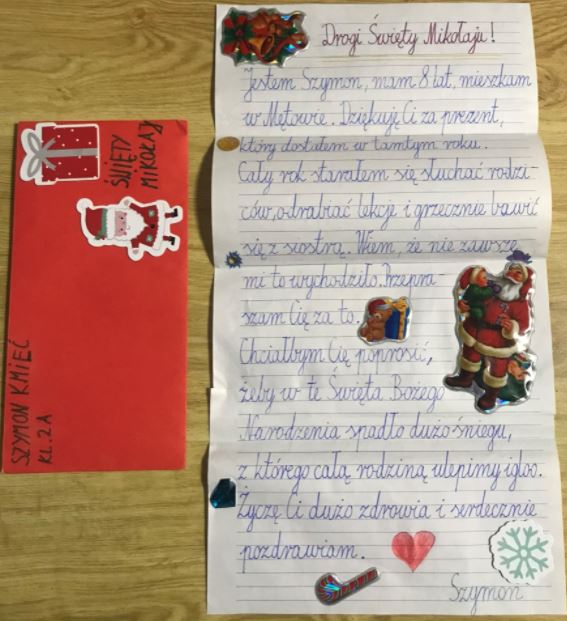 Drogi Święty Mikołaju!
Jestem Szymon, mam 8 lat, mieszkam
w Mętowie. Dziękuję Ci za prezent,
który dostałem w tamtym roku.
Cały rok starałem się słuchać rodzi-
ców, odrabiać lekcje i grzecznie bawić
się z siostrą. Wiem, że nie zawsze
mi to wychodziło. Przepra-
szam Cię za to.
Chciałbym Cię poprosić,
żeby w te Święta Bożego
Narodzenia spadło dużo śniegu,
z którego całą rodziną ulepimy igloo.
Życzę Ci dużo zdrowia i serdecznie
pozdrawiam.
Szymon
ŚWIĘTY
MIKOŁAJ
SZYMON KMIEĆ
KL. 2A